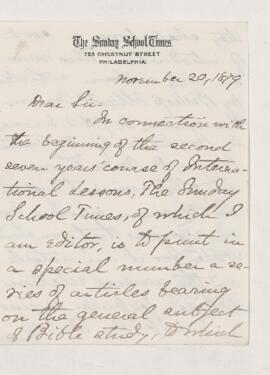 The Sunday School Times.
725 CHESTNUT STREET
PHILADELPHIA.
November 20, 1879.
Dear Sir-
In connection with
the beginning of the second
seven years' course of Interna-
tional Lessons, The Sunday
School Times, of which I
am editor, is to print in
a special number a se-
ries of articles bearing
on the general subject
of Bible study, to which